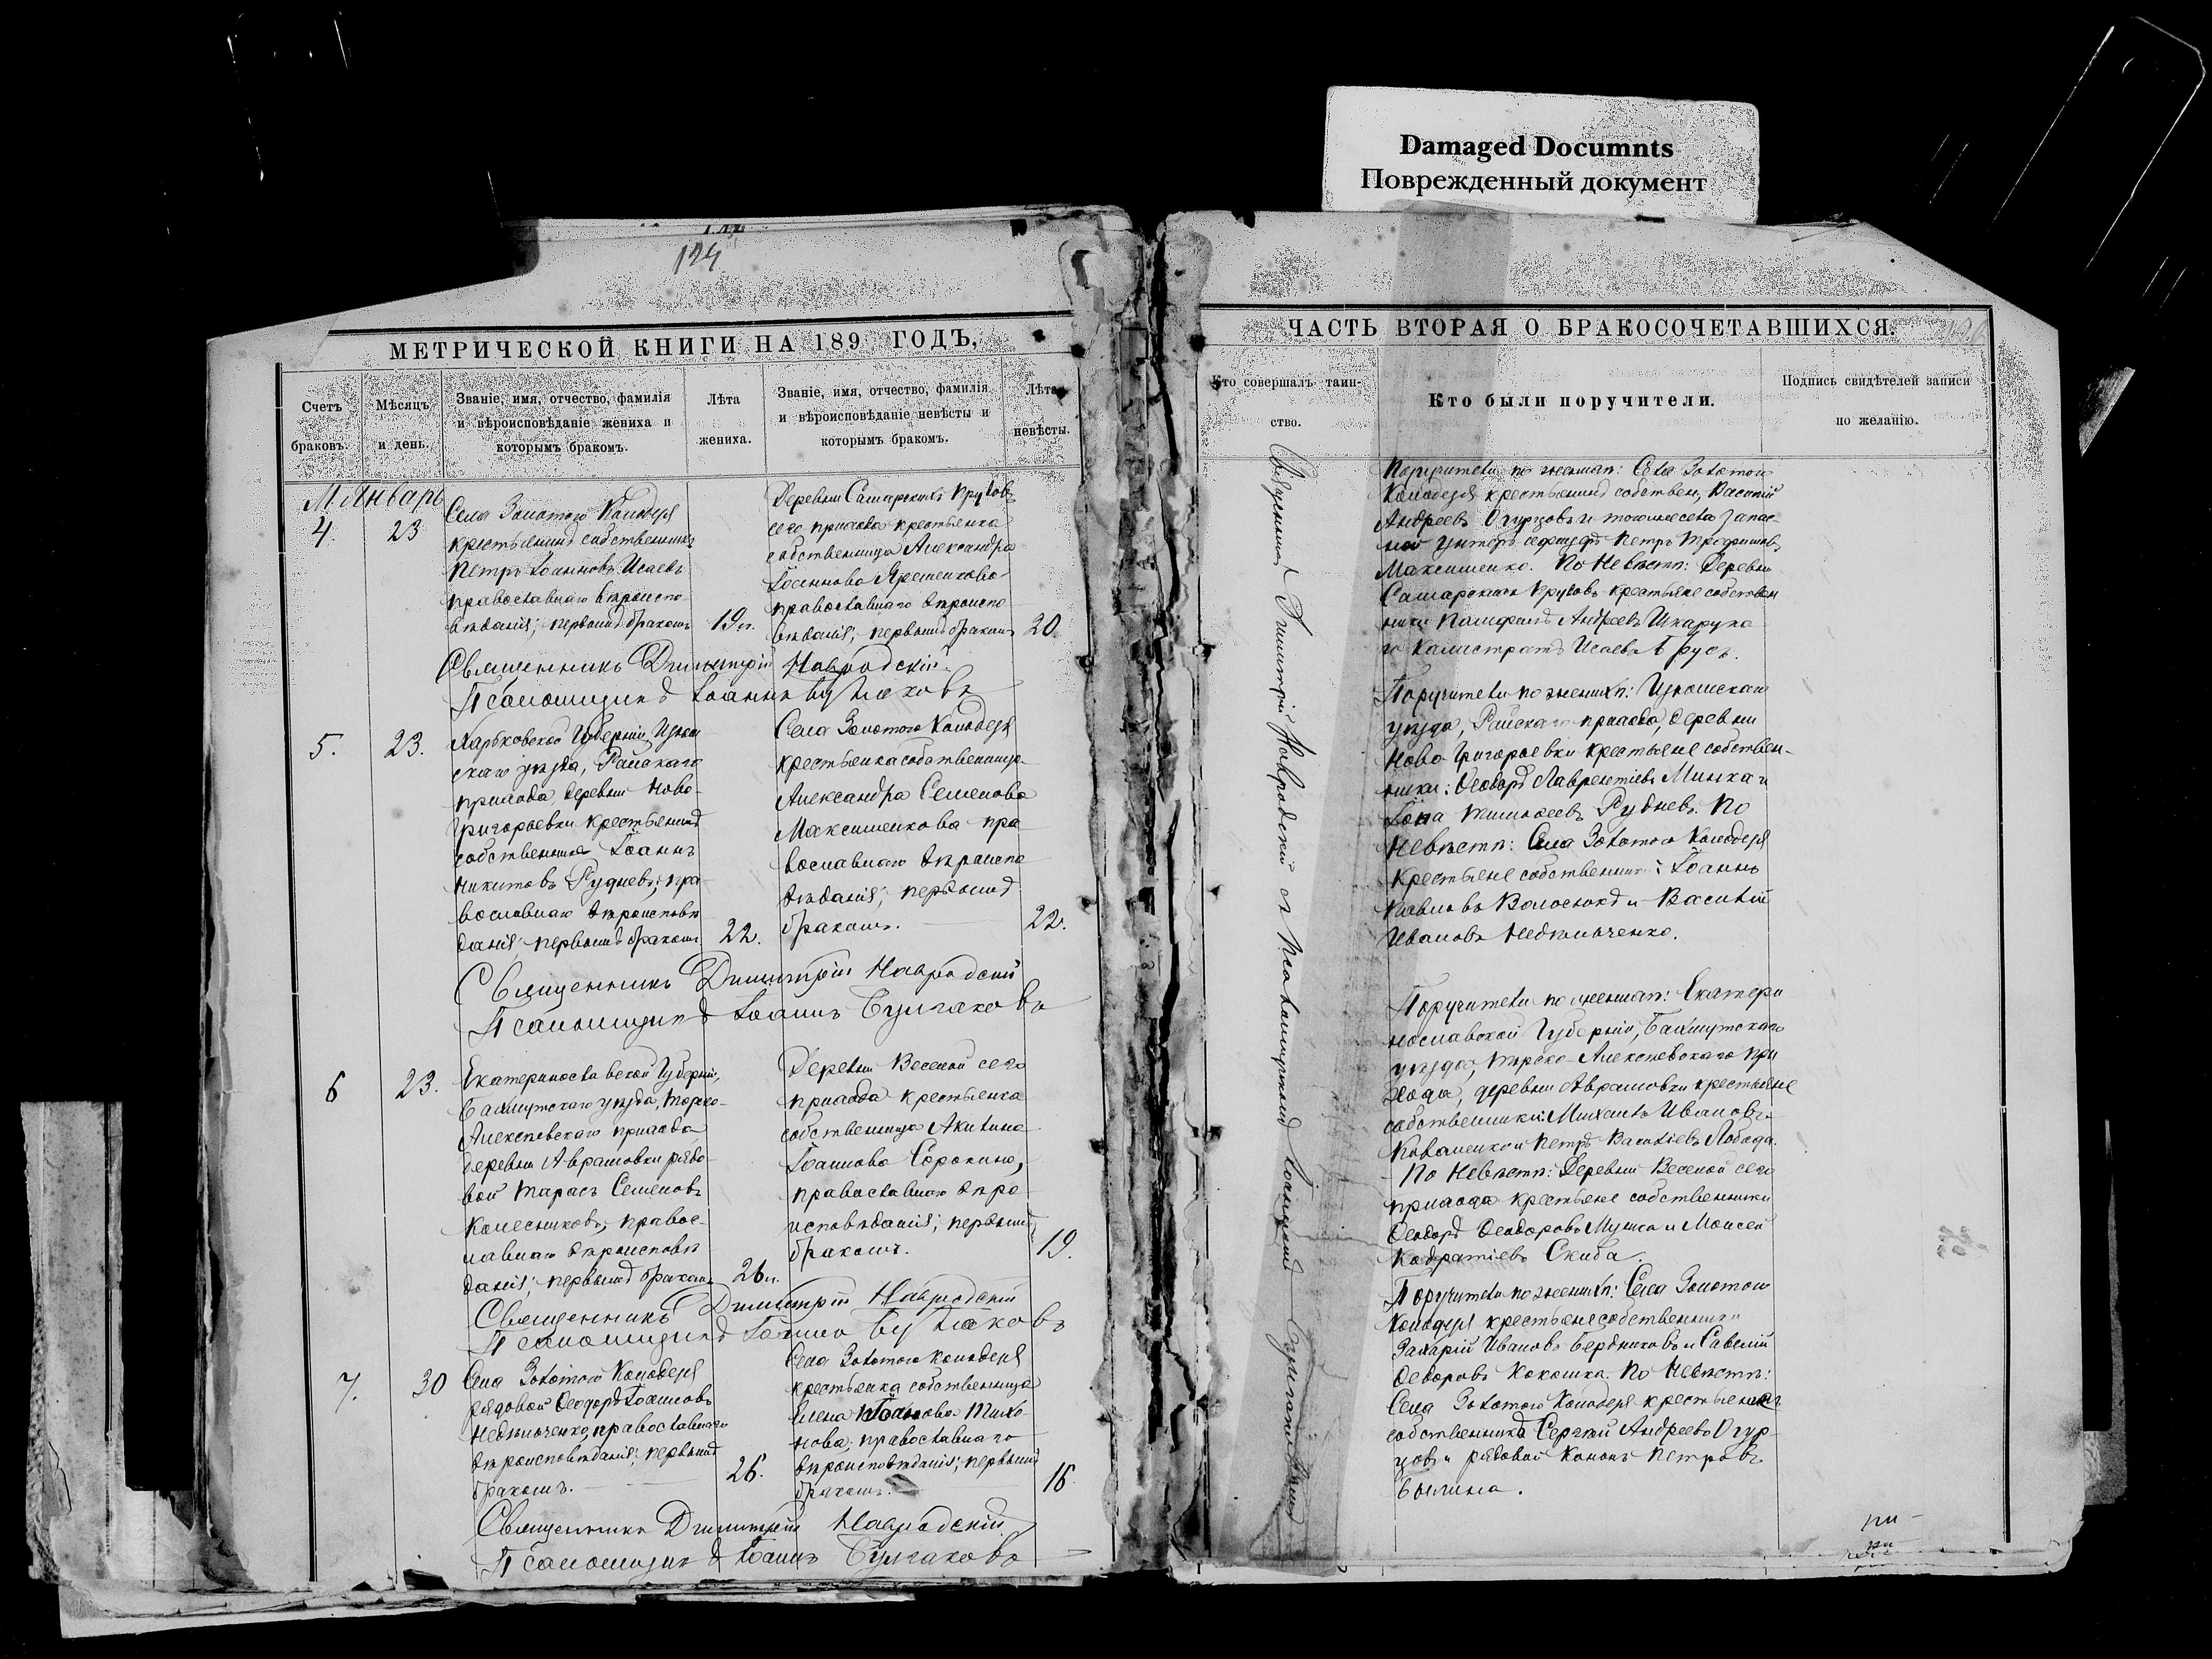 Damaged Documnts
Поврежденный документ
124
МЕТРИЧЕСКОЙ КНИГИ НА 189 ГОДЪ,
Счетъ браковъ.
Мѣсяцъ и день.
Званіе, имя, отчество, фамилія
и вѣроисповѣданіе жениха и
которымъ бракомъ.
Лѣта
жениха.
Званіе, имя, отчество, фамилія
и вѣроисповѣданіе невѣсты и
которымъ бракомъ.
Лѣта
невѣсты.
М. Январь
4.
23
Села Золотого Колодезя
крестьянинъ собственникъ
Петръ Іоанновъ Исаевъ
православнаго вѣроиспо-
вѣданія; первымъ бракомъ
19 л.
Деревни Самарскихъ Прудовъ
сего прихода крестьянка
собственница Александра
Іоаннова
православнаго вѣроиспо
вѣданія; первымъ бракомъ
20.
Священникъ Димитрій Навродскій
Псаломщикъ Іоаннъ Булгаковъ
5.
23.
Харьковской Губерніи, Изюм
скаго уѣзда, Райскаго
прихода, деревни Ново-
Григорьевки крестьянинъ
собственникъ Іоаннъ
Никитовъ Рудневъ; пра-
вославнаго вѣроисповѣ
данія; первымъ бракомъ
22.
Села Золотого Колодезя
крестьянка собственница
Александра Семенова
Максименкова пра
вославнаго вѣроиспо
вѣданія; первымъ
бракомъ.
22.
Священникъ Димитрій Навродскій
Псаломщикъ Іоаннъ Булгаковъ
6
23.
Екатеринославской Губерніи,
Бахмутскаго уѣзда, Торско-
Алексѣевскаго прихода
деревни Аврамовки рядо-
вой Тарасъ Семеновъ
Колесниковъ, правос-
лавнаго вѣроисповѣ
данія; первымъ бракомъ
26 л.
Деревни Веселой сего
прихода крестьянка
собственница Акилина
Іоаннова Сорокина,
православнаго вѣро
исповѣданія; первымъ
бракомъ.
19.
Священникъ Димитрій Навродскій
Псаломщикъ Іоаннъ Булгаковъ
7.
30
Села Золотого Колодезя
рядовой Ѳеодоръ Іоанновъ
Недѣльченко, православнаго
вѣроисповѣданія; первымъ
бракомъ.
26.
Села Золотого Колодезя
крестьянка собственница
Елена
православнаго
вѣроисповѣданія; первымъ
бракомъ.
16
Священникъ Димитрій Навродскій
Псаломщикъ Іоаннъ Булгаковъ
ЧАСТЬ ВТОРАЯ О БРАКОСОЧЕТАВШИХСЯ.
Кто совершалъ таин-
ство.
Кто были поручители.
Подпись свидѣтелей записи
по желанію.
Священникъ Димитрій Навродскій съ Псаломщикомъ Іоанномъ Булгаковымъ
Поручители по женихѣ: Села Золотого
Колодезя крестьянинъ собствен, Василій
Андреевъ Огурцовъ и того же села запас-
ной унтеръ офицеръ Петръ Трофимовъ
Максименко. По Невѣстѣ: Деревни
Самарскихъ Прудовъ крестьяне собствен
ники Памфилъ Андреевъ Шкарупа
и Калистратъ Исаевъ
Поручители по женихѣ: Изюмскаго
уѣзда, Райскаго прихода, деревни
Ново Григорьевки крестьяне собствен-
ники: Ѳеодоръ Лаврентіевъ Минка и
Іона Тимоѳеевъ Рудневъ. По
Невѣстѣ: Села Золотого Колодезя
крестьяне собственники: Іоаннъ
Павловъ Волосюкъ и Василій
Ивановъ Недѣльченко.
Поручители по женихѣ: Екатери
нославской Губерніи, Бахмутскаго
уѣзда, Торско-Алексѣевскаго при
хода, деревни Аврамовки крестьяне
собственники: Михаилъ Ивановъ
Коваленко и Петръ Василіевъ Лобода.
По Невѣстѣ: Деревни Веселой сего
прихода крестьяне собственники
Ѳеодоръ Ѳеодоровъ Мушка и Моисей
Кодратіевъ Скиба
Поручители по женихѣ: Села Золотого
Колодезя крестьяне собственники
Захарій Ивановъ Бердниковъ и Савелій
Ѳедоровъ Кокошка. По Невѣстѣ:
Села Золотого Колодезя крестьянинъ
собственникъ Сергѣй Андреевъ Огур-
цовъ и рядовой Кононъ Петровъ
Былина.